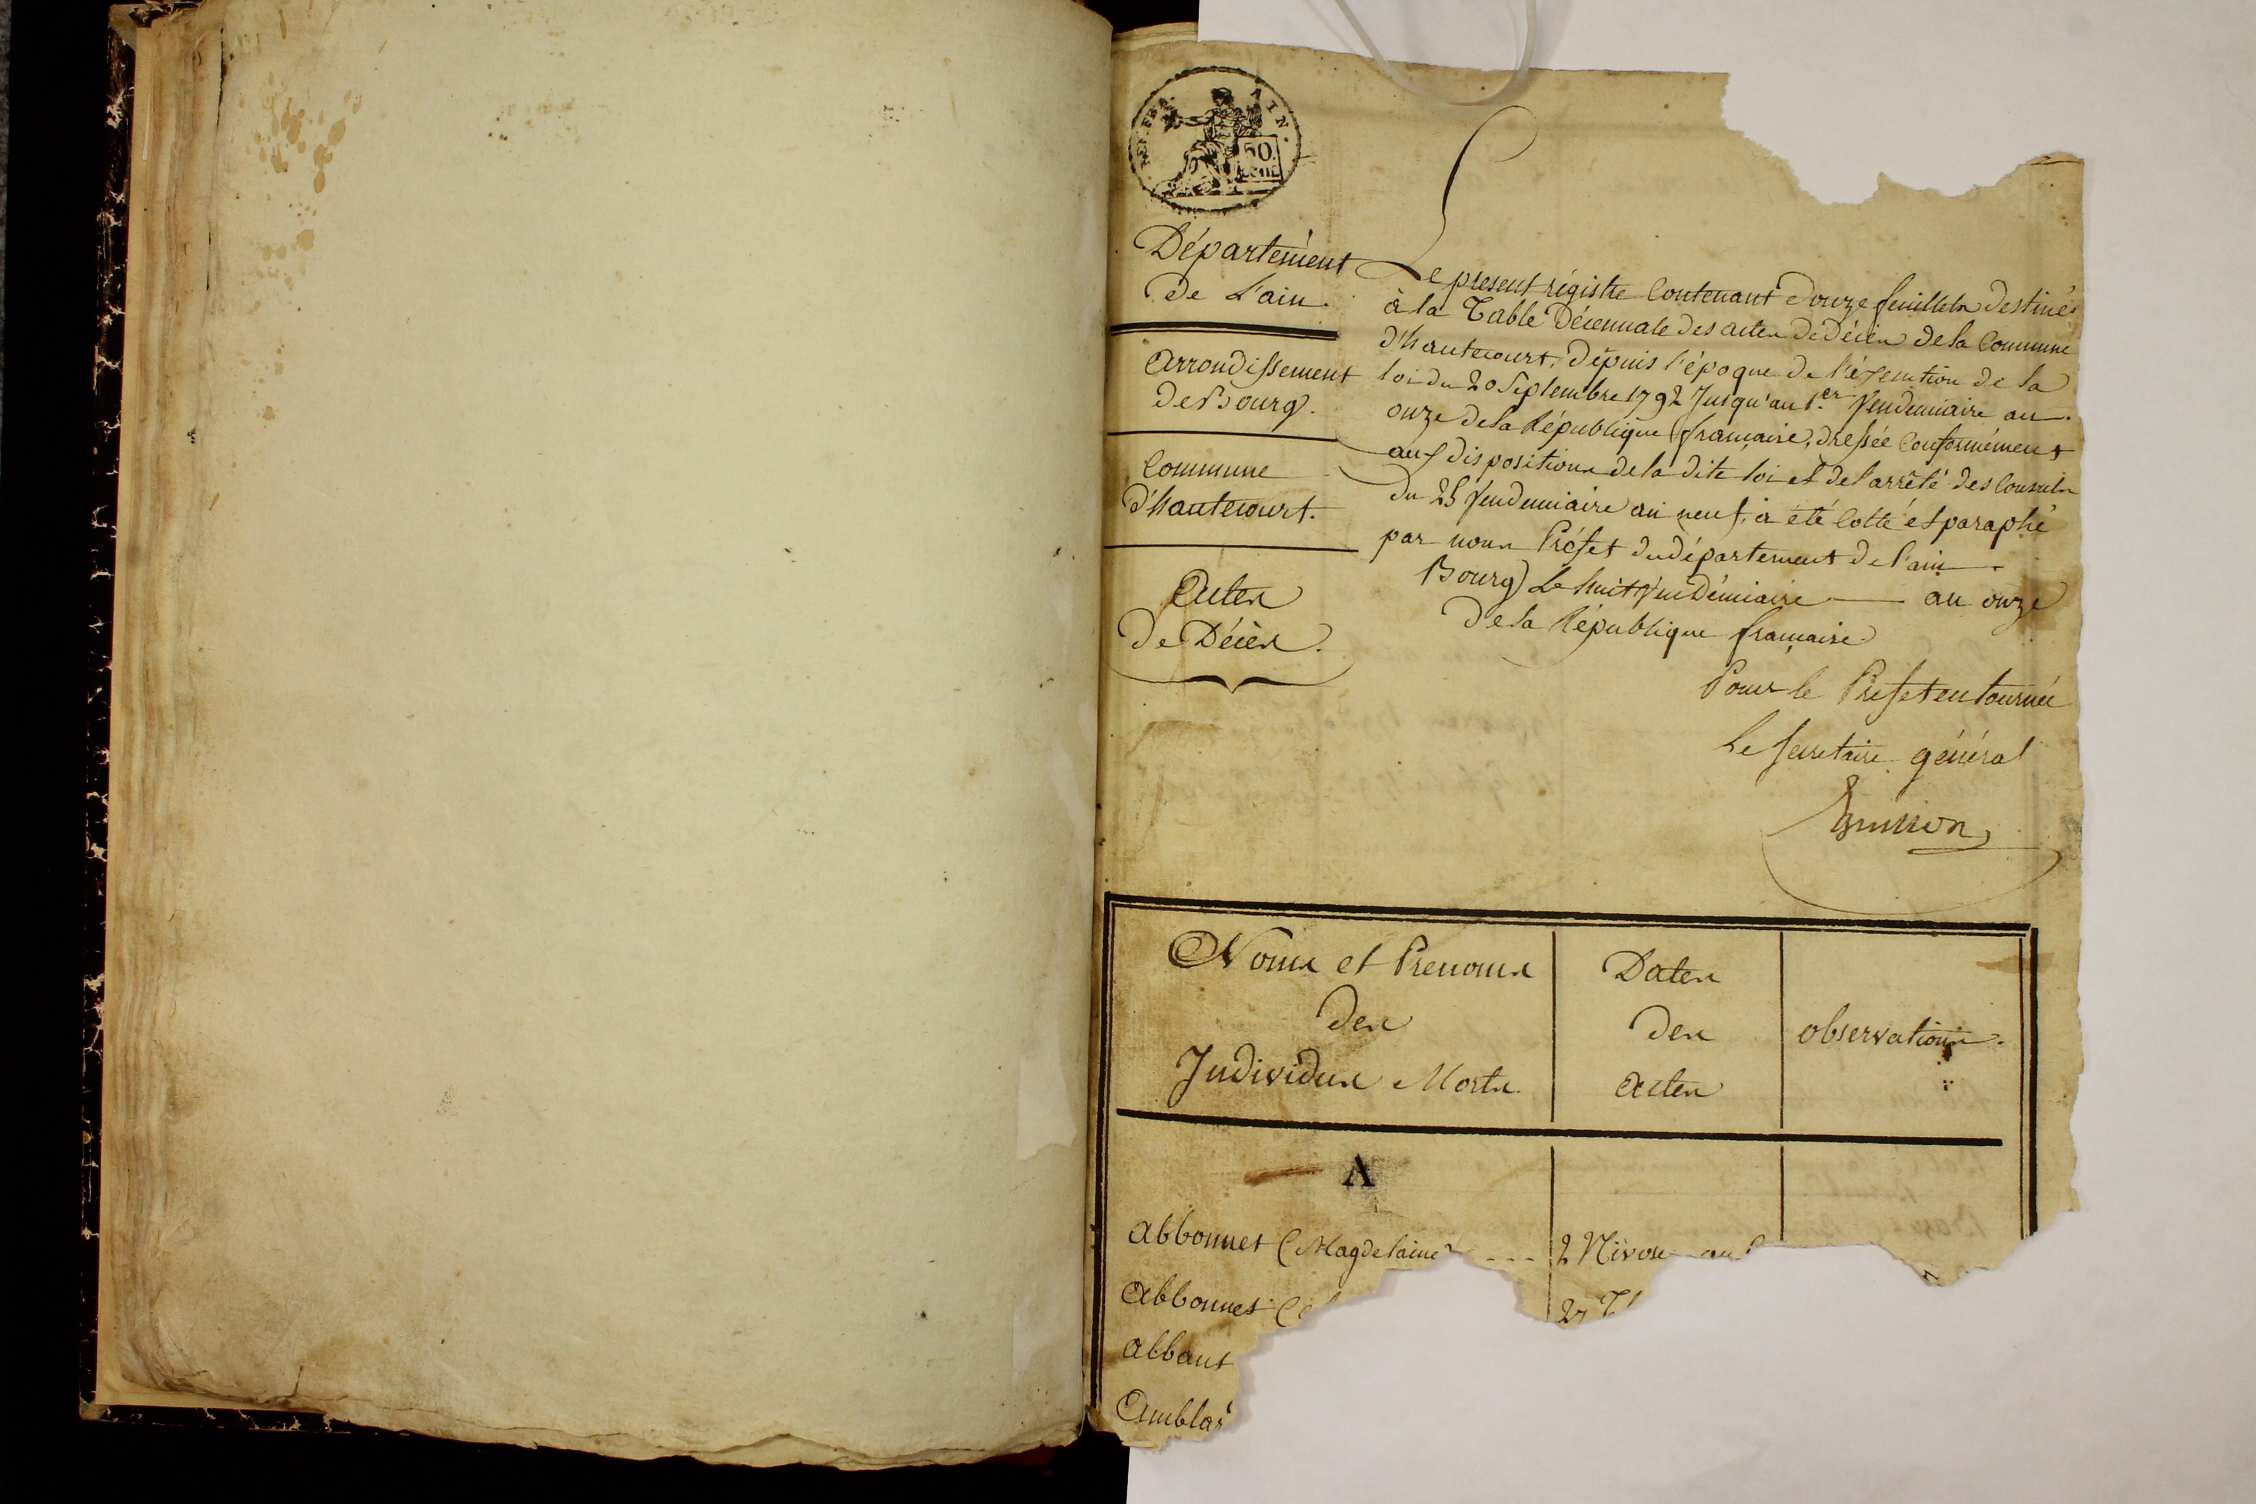 AIN.
50.
Département
de L'ain.
Arrondissement
de Bourg.
Commune
d'hautecourt.
Actes
de Décès.
Le present régistre Contenant Douze feuillets destiné
à la Table Décennale des actes de Décès de la Commune
d'hautecourt, dépuis l'époque de l'éxécution de la
loi du 20 Septembre 1792 Jusqu'au 1.er Vendemiaire an
onze de la République française, dressée Conformément
aux dispositions de la dite loi et de l'arrêté des Consuls
du 25 Vendemiaire an neuf, a été Cotté et paraphé
par nous Préfet du département de l'ain
Bourg Le huit Vendémiaire an onze
de la République française
Pour le Préfet en tournée
Le Secretaire général
Noms et Prenoms
des
Individus Morts
Dates
des
actes
observations.
A
abbonnet (Magdelaine) --- 2 Nivose an
Abbonnet ( 27
abbaut
Ambla